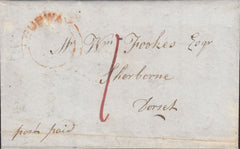 Mr Wm Fookes Esqr
Sherborne
Dorset
post paid